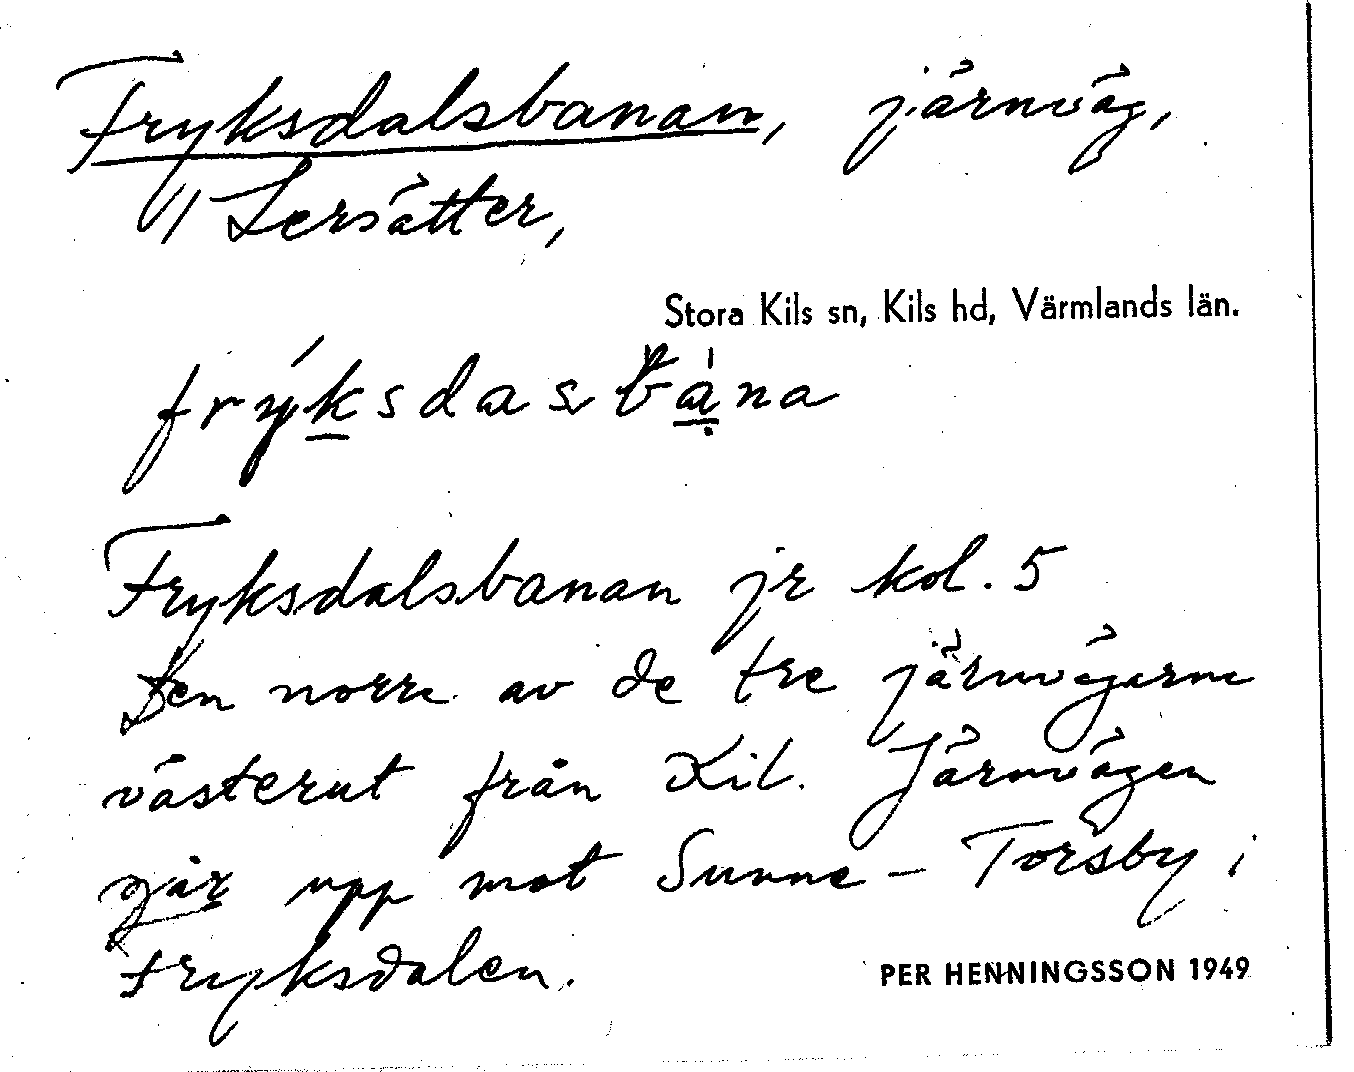 Fryksdalsbanan, järnväg,
1/ Lersätter,
Stora Kils sn, Kils hd, Värmlands län.
frýksdasbána
Fryksdalsbanan jr kol. 5
Den norra av de tre järnvägarna
västerut från Kil. Järnvägen
går upp mot Sunne - Torsby i
Fryksdalen.
PER HENNINGSSON 1949